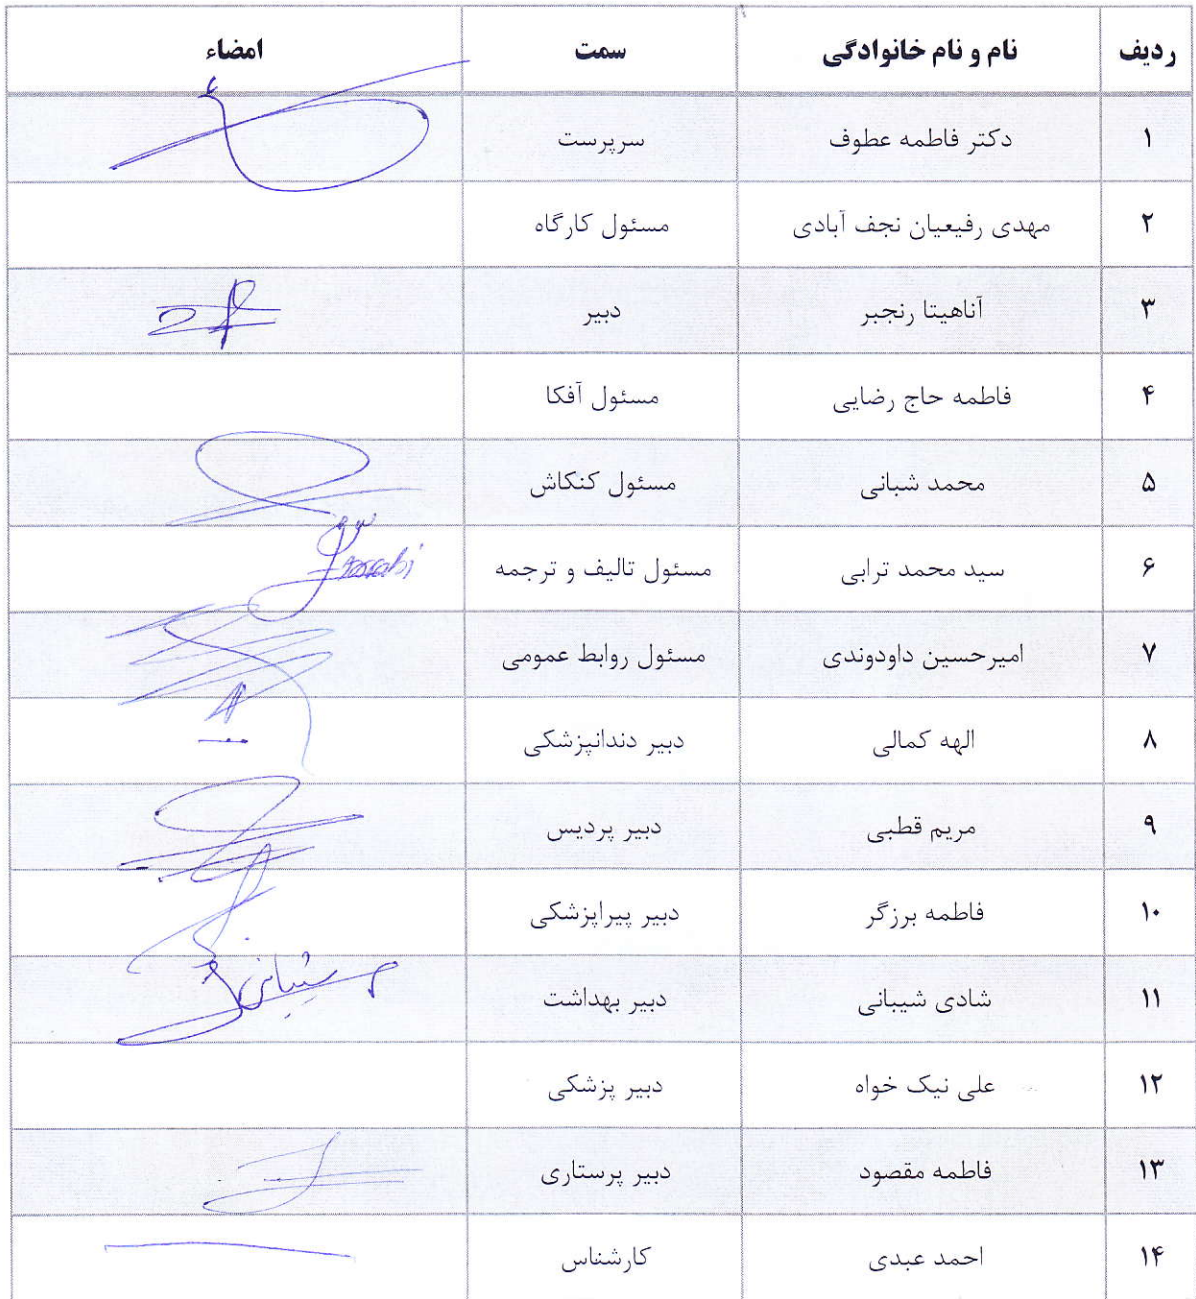 ردیف نام و نام خانوادگی سمت امضاء
۱ دکتر فاطمه عطوف سرپرست
۲ مهدی رفیعیان نجف آبادی مسئول کارگاه
۳ آناهیتا رنجبر دبیر
۴ فاطمه حاج رضایی مسئول آفکا
۵ محمد شبانی مسئول کنکاش
۶ سید محمد ترابی مسئول تالیف و ترجمه
۷ امیرحسین داودوندی مسئول روابط عمومی
۸ الهه کمالی دبیر دندانپزشکی
۹ مریم قطبی دبیر پردیس
۱۰ فاطمه برزگر دبیر پیراپزشکی
۱۱ شادی شیبانی دبیر بهداشت شیبانی
۱۲ علی نیک خواه دبیر پزشکی
۱۳ فاطمه مقصود دبیر پرستاری
۱۴ احمد عبدی کارشناس